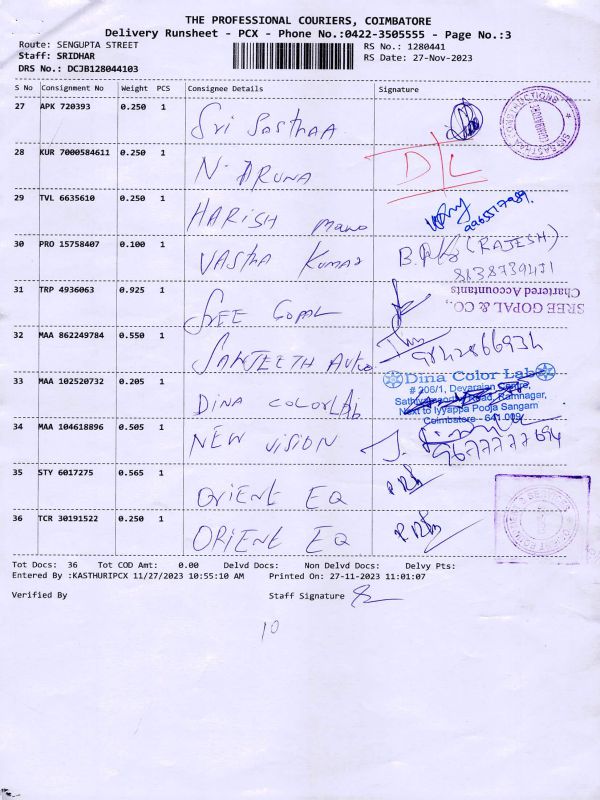 THE PROFESSIONAL COURIERS, COIMBATORE
Delivery Runsheet - PCX - Phone No.:0422-3505555 - Page No.:3
Route: SENGUPTA STREET RS No.: 1280441
Staff: SRIDHAR RS Date: 27-Nov-2023
DRS No.: DCJB128044103
S No Consignment No Weight PCS Consignee Details Signature
27 APK 720393 0.250 1 Sri Sasthaa
28 KUR 7000584611 0.250 1 N. ARUNA D/L
29 TVL 6635610 0.250 1 HARISH
30 PRO 15758407 0.100 1 VASTHA Kumar (RAJESH)
31 TRP 4936063 0.925 1 SREE GOPAL
SREE GOPAL & CO.,
Chartered Accountants
32 MAA 862249784 0.550 1 SANJEETH Auto
33 MAA 102520732 0.205 1 DINA COLORLAB
Dina Color Lab
# 206/1, Devarajan Centre,
Ramnagar,
Next to Iyyappa Pooja Sangam
Coimbatore - 641 009
34 MAA 104618896 0.505 1 NEW VISION
35 STY 6017275 0.565 1 ORIENT EQ
36 TCR 30191522 0.250 1 ORIENT EQ
Tot Docs: 36 Tot COD Amt: 0.00 Delvd Docs: Non Delvd Docs: Delvy Pts:
Entered By :KASTHURIPCX 11/27/2023 10:55:10 AM Printed On: 27-11-2023 11:01:07
Verified By Staff Signature
10